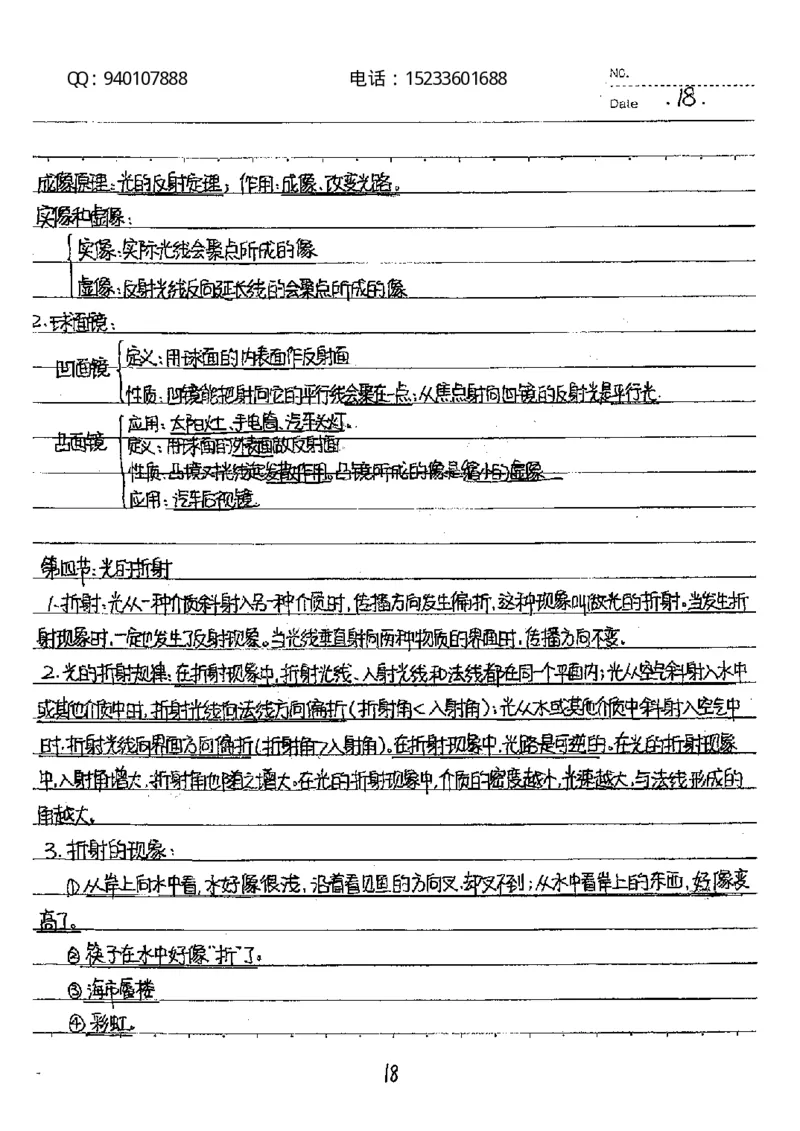 QQ：940107888 电话：15233601688 NO.
Date .18.
成像原理：光的反射定理；作用：成像、改变光路。
实像和虚像：
实像：实际光线会聚点所成的像
虚像：反射光线反向延长线的会聚点所成的像
2.球面镜：
凹面镜
定义：用球面的内表面作反射面
性质：凹镜能把射向它的平行线会聚在一点；从焦点射向凹镜的反射光是平行光.
应用：太阳灶、手电筒、汽车头灯。
凸面镜
定义：用球面的外表面做反射面
性质：凸镜对光线起发散作用。凸镜所成的像是缩小的虚像
应用：汽车后视镜.
第四节：光的折射
1.折射：光从一种介质斜射入另一种介质时，传播方向发生偏折，这种现象叫做光的折射。当发生折
射现象时，一定也发生了反射现象。当光线垂直射向两种物质的界面时，传播方向不变。
2.光的折射规律：在折射现象中，折射光线、入射光线和法线都在同一个平面内；光从空气斜射入水中
或其他介质中时，折射光线向法线方向偏折（折射角<入射角）；光从水或其他介质中斜射入空气中
时，折射光线向界面方向偏折（折射角>入射角）。在折射现象中，光路是可逆的。在光的折射现象
中，入射角增大，折射角也随之增大。在光的折射现象中，介质的密度越小，光速越大，与法线形成的
角越大。
3.折射的现象：
①从岸上向水中看，水好像很浅，沿着看见鱼的方向叉，却叉不到；从水中看岸上的东西，好像变
高了。
②筷子在水中好像“折”了。
③海市蜃楼
④彩虹。
18